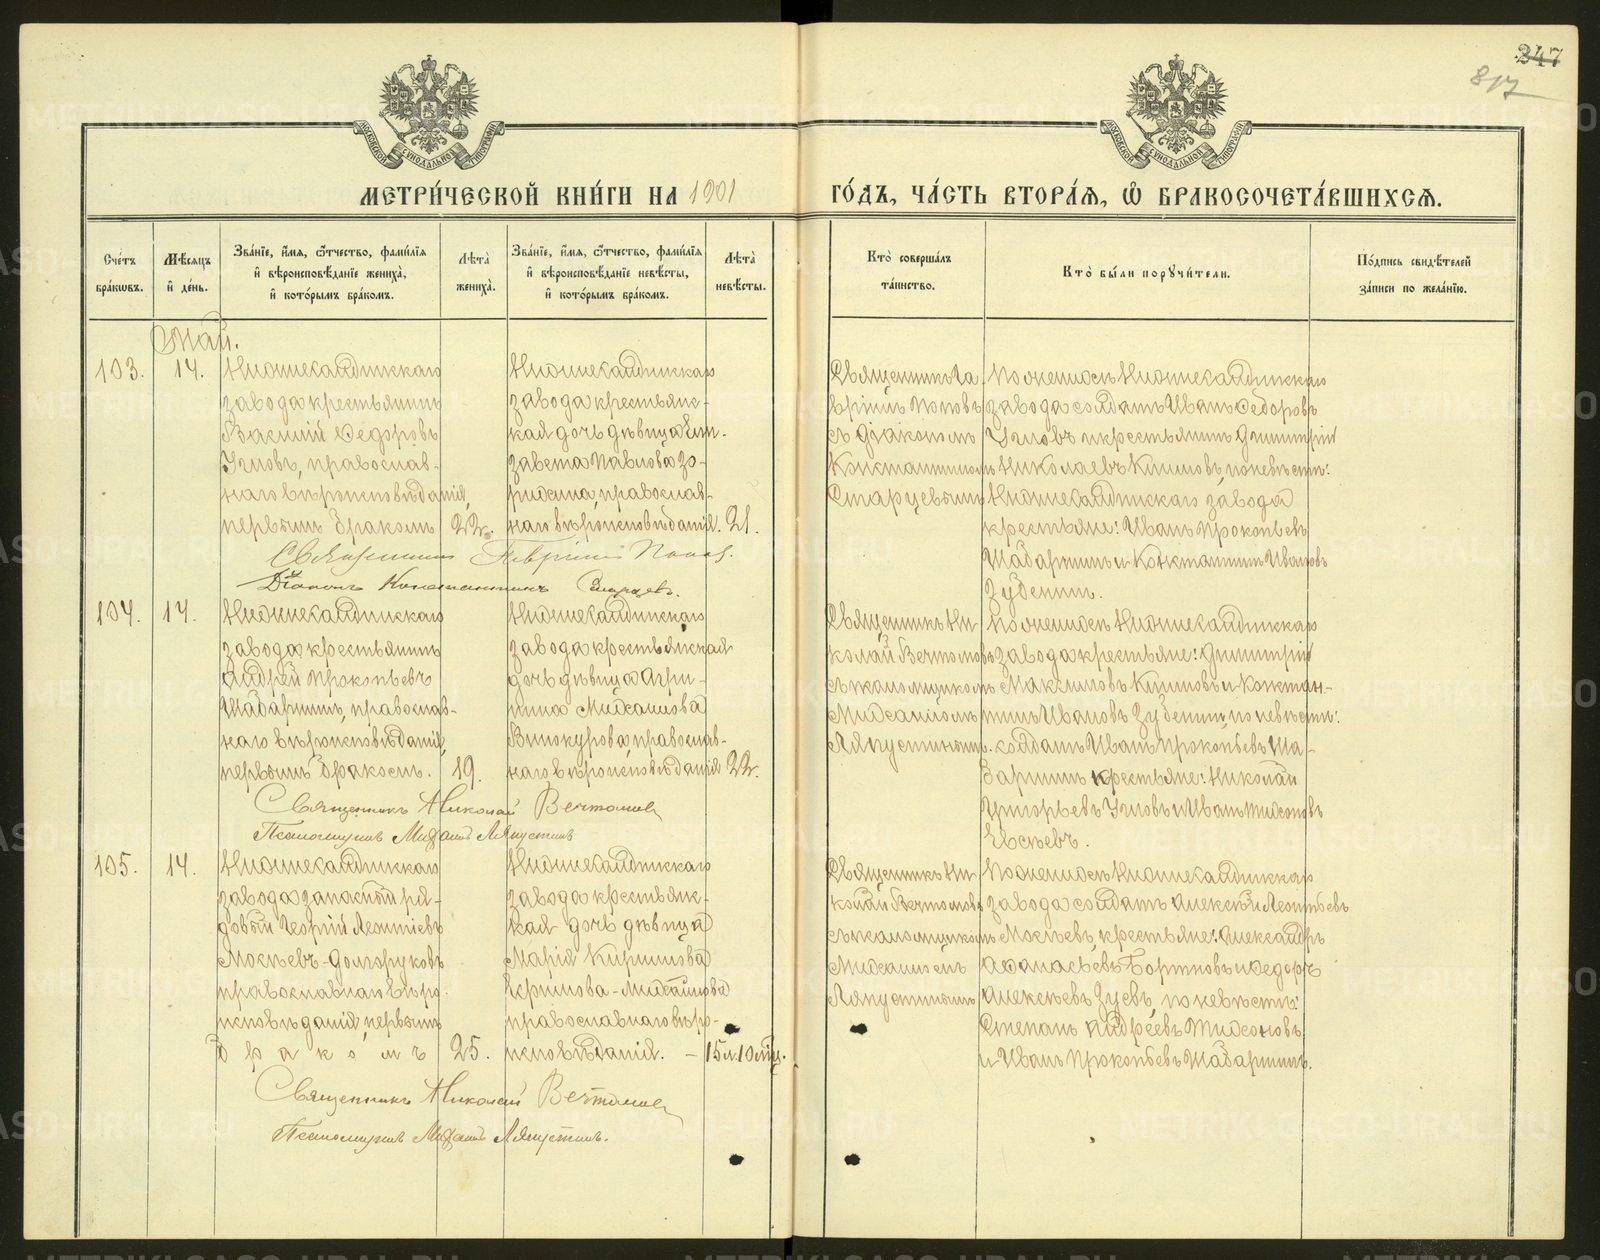 347
817
МЕТРИ́ЧЕСКОЙ КНИ́ГИ НА 1901
ГО́ДЪ, ЧА́СТЬ ВТОРА́Я, Ѽ БРАКОСОЧЕТА́ВШИХСѦ.
МОСКОВСКОЙ СѴНОДАЛЬНОЙ ТИПОГРАФІИ
МОСКОВСКОЙ СѴНОДАЛЬНОЙ ТИПОГРАФІИ
Сче́тъ
бра́кѡвъ.
Мѣ́сяцъ
и҆ де́нь.
Зва́нїе, и҆́мя, ѻ҆́тчество, фами́лїя
и҆ вѣроисповѣ́данїе жениха̀,
и҆ кото́рымъ бра́комъ.
Лѣта̀
жениха̀.
Зва́нїе, и҆́мя, ѻ҆́тчество, фами́лїя
и҆ вѣроисповѣ́данїе невѣ́сты,
и҆ кото́рымъ бра́комъ.
Лѣта̀
невѣ́сты.
Кто̀ соверша́лъ
та́инство.
Кто̀ бы́ли поручи́тели.
По́дпись свидѣ́телей
за́писи по жела́нїю.
Май.
103.
14.
Нижнесалдинскаго
завода крестьянинъ
Василій Федоровъ
Углов, православ-
наго вѣроисповѣданія,
первымъ бракомъ
22.
Нижнесалдинскаго
завода крестьянс-
кая дочь дѣвица Ели-
завета Павлова Зо-
рихина, православ-
наго вѣроисповѣданія.
21.
Священникъ Га-
вріилъ Поповъ
съ діакономъ
Константиномъ
Старцевымъ
По женихѣ Нижнесалдинскаго
завода солдатъ Иванъ Федоровъ
Угловъ и крестьянинъ Димитрій
Николаевъ Климовъ, по невѣстѣ:
Нижнесалдинскаго завода
крестьяне: Иванъ Прокопьевъ
Шабаршинъ и Константинъ Ивановъ
Зубенинъ.
Священникъ Гавріилъ Поповъ.
Діаконъ Константинъ Старцевъ.
104.
14.
Нижнесалдинскаго
завода крестьянинъ
Андрей Прокопьевъ
Шабаршинъ, православ-
наго вѣроисповѣданія,
первымъ бракомъ.
19.
Нижнесалдинскаго
завода крестьянская
дочь дѣвица Агри-
пина Михайлова
Винокурова, православ-
наго вѣроисповѣданія
22.
Священникъ Ни-
колай Вечтомовъ
съ псаломщикомъ
Михаиломъ
Ляпустинымъ.
По женихѣ Нижнесалдинскаго
завода крестьяне: Димитрій
Максимовъ Климовъ и Констан-
тинъ Ивановъ Зубенинъ, по невѣстѣ:
солдатъ Иванъ Прокопьевъ Ша-
баршинъ крестьяне: Николай
Григорьевъ Угловъ и Иванъ Тихоновъ
Евсѣевъ.
Священникъ Николай Вечтомовъ
Псаломщикъ Михаилъ Ляпустинъ
105.
14.
Нижнесалдинскаго
завода запасный ря-
довый Георгій Леонтіевъ
Мосѣевъ-Долгоруковъ
православнаго вѣро-
исповѣданія, первымъ
бракомъ
25.
Нижнесалдинскаго
завода крестьянс-
кая дочь дѣвица
Марія Кирилова
православнаго вѣро-
исповѣданія.
15 л. 10 мц.
Священникъ Ни-
колай Вечтомовъ
съ псаломщикомъ
Михаиломъ
Ляпустинымъ
По женихѣ Нижнесалдинскаго
завода солдатъ Алексѣй Леонтьевъ
Мосѣевъ, крестьяне: Александръ
Афанасьевъ Бортновъ и Федоръ
Алексѣевъ Зуевъ, по невѣстѣ:
Степанъ Андреевъ Тихоновъ
и Иванъ Прокопьевъ Шабаршинъ.
Священникъ Николай Вечтомовъ
Псаломщикъ Михаилъ Ляпустинъ.
METRIKI.GASO-URAL.RU